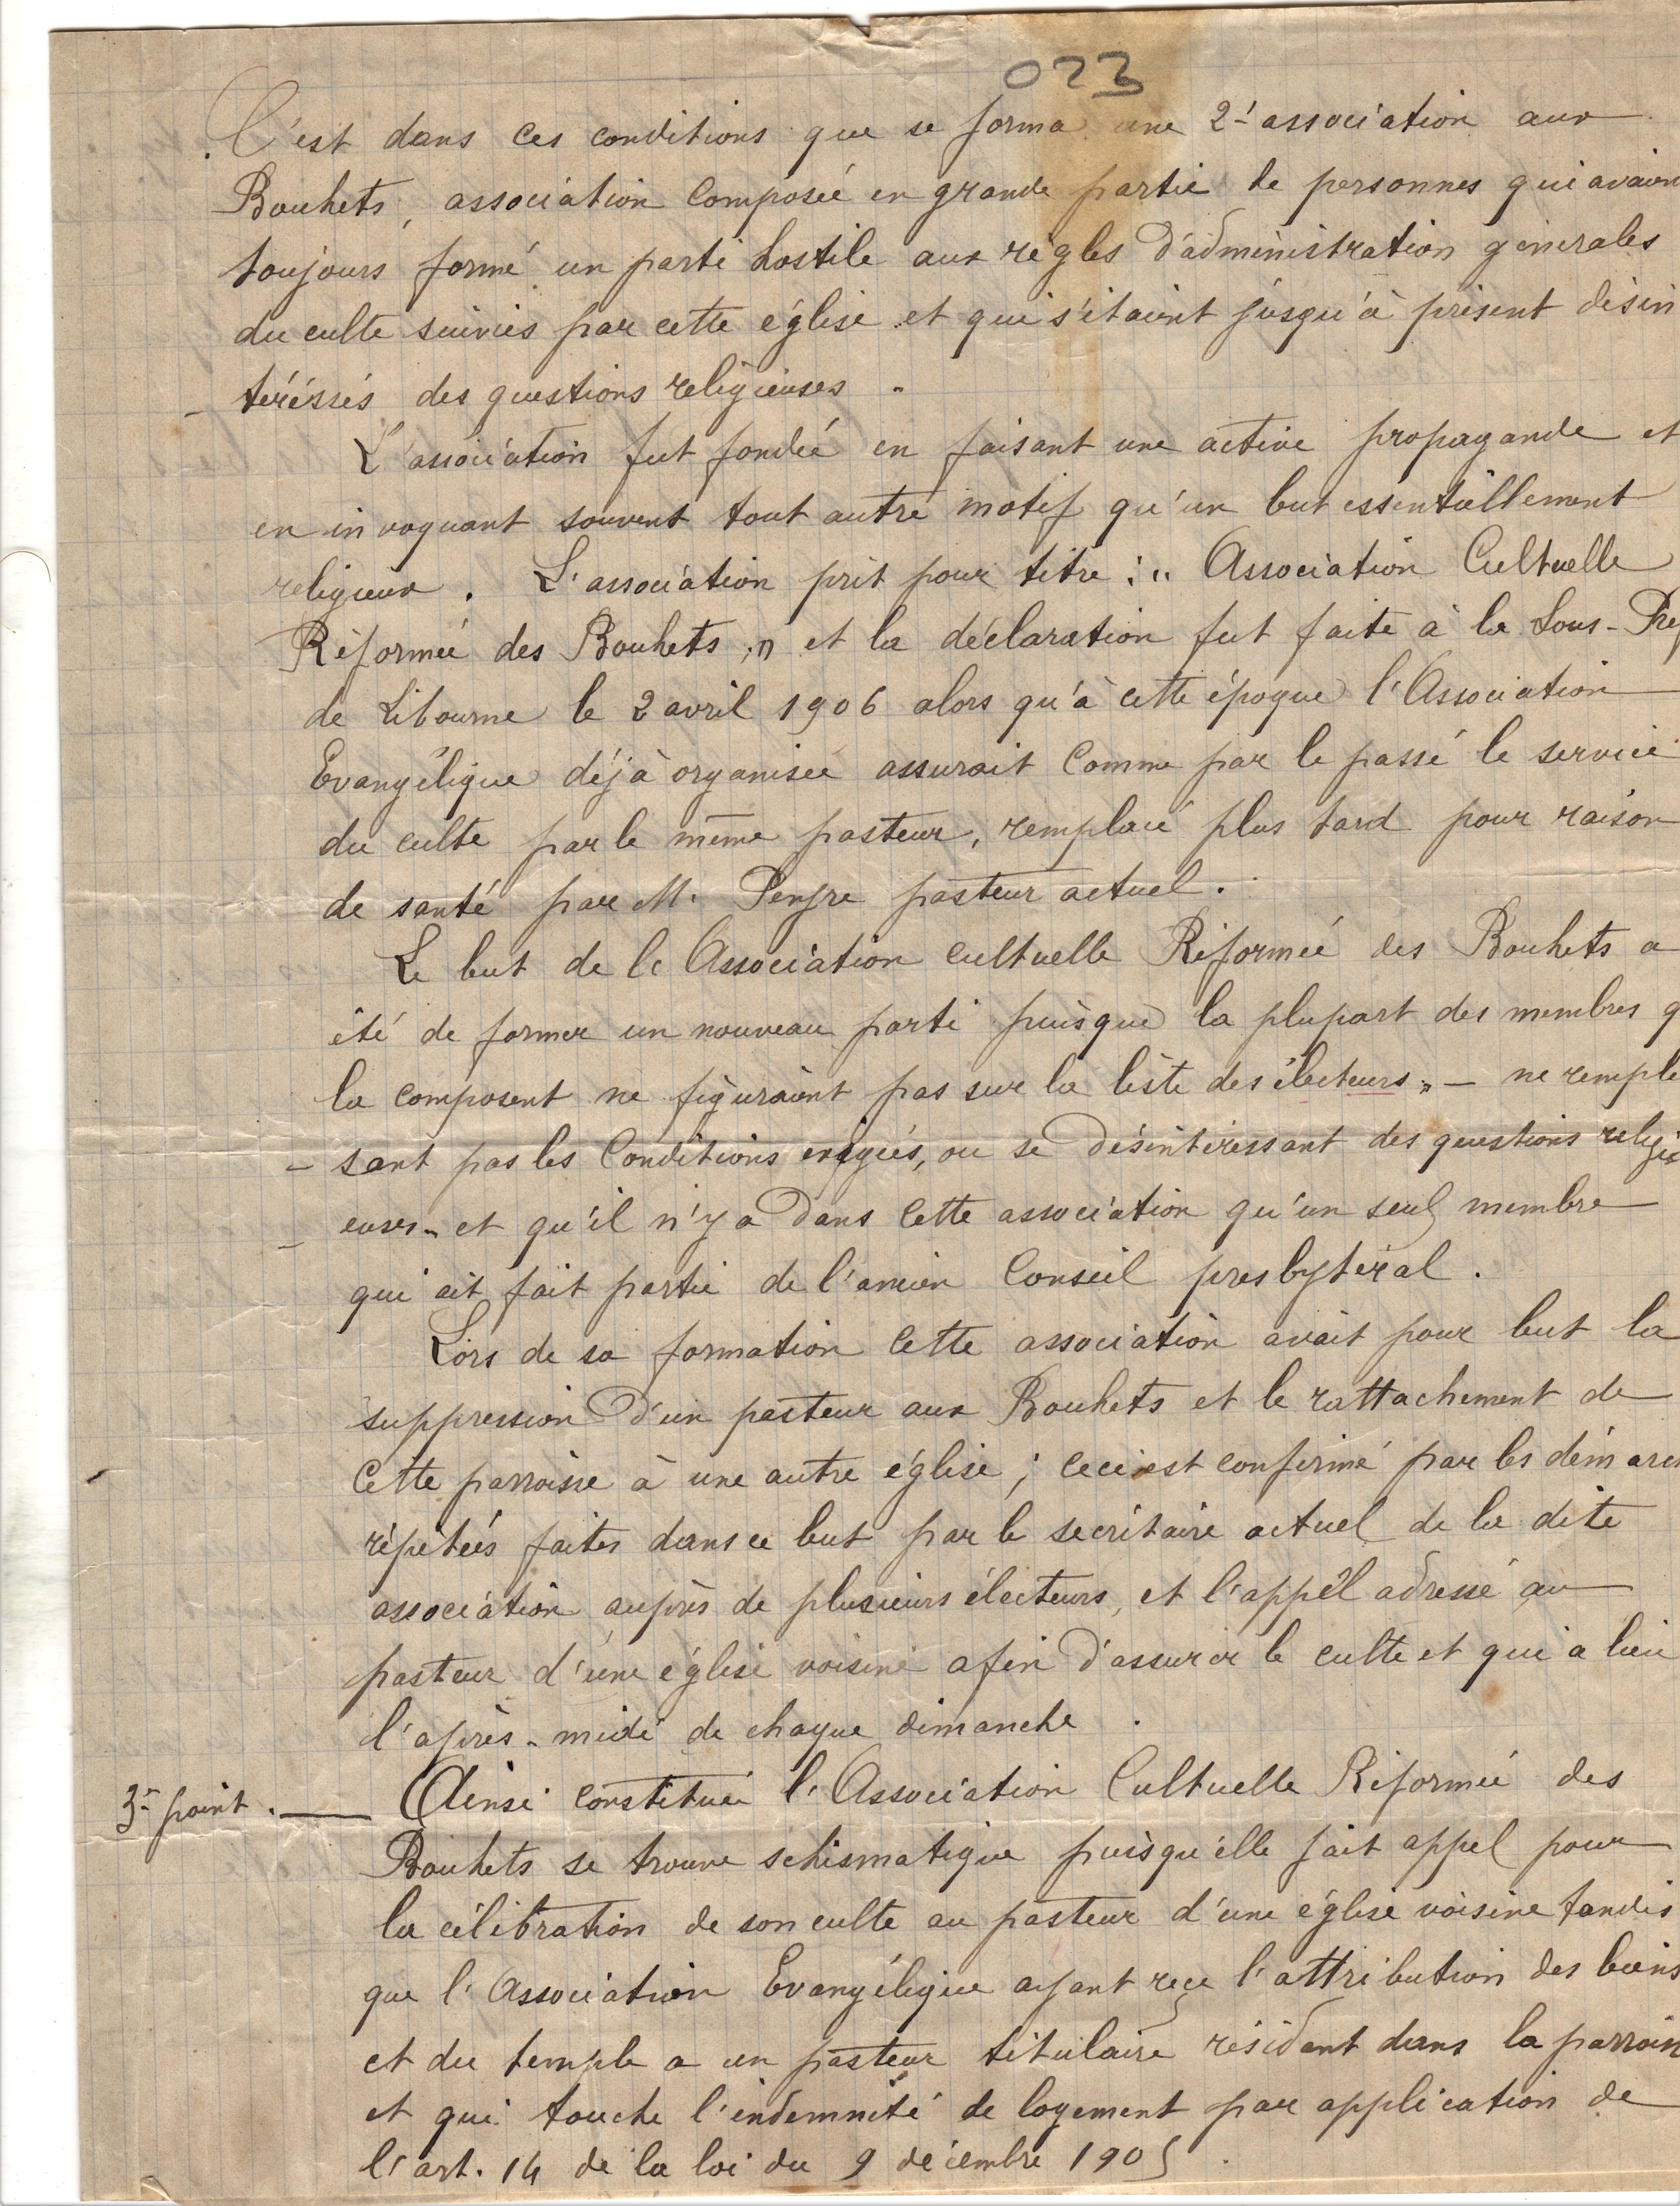 023
C'est dans ces conditions que se forma une 2e association aux
Bouhets, association composée en grande partie de personnes qui avaien
toujours formé un parti hostile aux règles d'administration génerales
du culte suivies par cette église et qui s'étaient jusqu'à présent désin
- téréssés des questions religieuses.
L'association fut fondée en faisant une active propagande et
en invoquant souvent tout autre motif qu'un but essentiellement
religieux. L'association prit pour titre : " Association Cultuelle
Réformée des Bouhets, " et la déclaration fut faite à la Sous-Pref
de Libourne le 2 avril 1906 alors qu'à cette époque l'Association
Evangélique déjà organisée assurait comme par le passé le service
du culte par le même pasteur, remplacé plus tard pour raison
de santé par M. pasteur actuel.
Le but de la Association cultuelle Réformée des Bouhets a
été de former un nouveau parti puisque la plupart des membres q
la composent ne figuraient pas sur la liste des électeurs, - ne remplis
- sant pas les conditions exigées, ou se désintéressant des questions religi
- euses - et qu'il n'y a dans cette association qu'un seul membre
qui ait fait partie de l'ancien Conseil presbytéral.
Lors de sa formation cette association avait pour but la
suppression d'un pasteur aux Bouhets et le rattachement de
cette parroisse à une autre église ; ceci est confirmé par les démarch
répétées faites dans ce but par le secrétaire actuel de la dite
association auprès de plusieurs électeurs, et l'appel adressé au
pasteur d'une église voisine afin d'assurer le culte et qui a lieu
l'après-midi de chaque dimanche.
3e point. — Ainsi constituée l'Association Cultuelle Réformée des
Bouhets se trouve schismatique puisqu'elle fait appel pour
la célébration de son culte au pasteur d'une église voisine tandis
que l'Association Evangélique ayant reçu l'attribution des biens
et du temple a un pasteur titulaire résidant dans la parroiss
et qui touche l'indemnité de logement par application de
l'art. 14 de la loi du 9 décembre 1905.